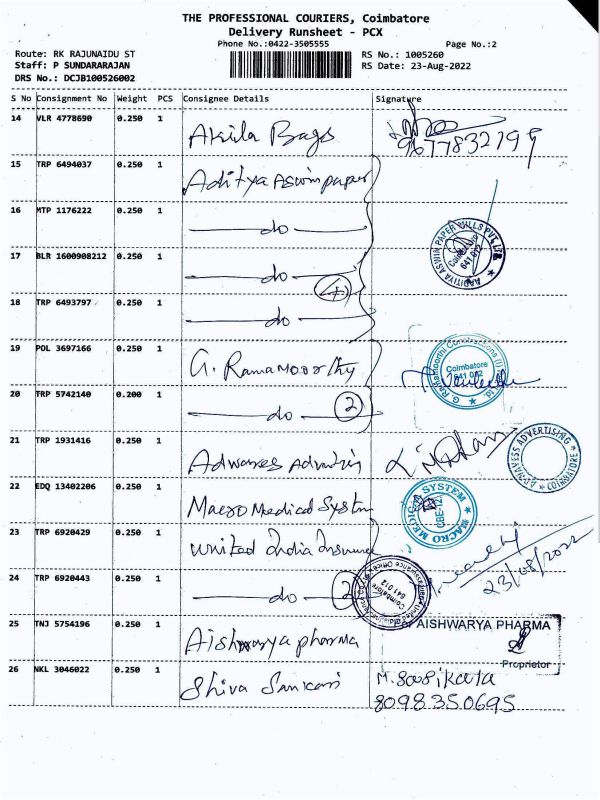 THE PROFESSIONAL COURIERS, Coimbatore
Delivery Runsheet - PCX
Phone No.:0422-3505555 Page No.:2
Route: RK RAJUNAIDU ST RS No.: 1005260
Staff: P SUNDARARAJAN RS Date: 23-Aug-2022
DRS No.: DCJB100526002
S No Consignment No Weight PCS Consignee Details Signature
14 VLR 4778690 0.250 1 Akila Bags 9677832799
15 TRP 6494037 0.250 1 Aditya Aswin paper
16 MTP 1176222 0.250 1 do
AADITYA ASWIN PAPER MILLS PVT. LTD. Coimbatore 641 012
17 BLR 1600908212 0.250 1 do
4
18 TRP 6493797 0.250 1 do
19 POL 3697166 0.250 1 G. Ramamoorthy
G. Ramamoorthi Constructions (I) Ltd. Coimbatore 641 012
20 TRP 5742140 0.200 1 do 2
21 TRP 1931416 0.250 1
ADVERTISING COIMBATORE
22 EDQ 13402206 0.250 1 Macro Medical System
MACRO MEDICAL SYSTEM CBE-12
23 TRP 6920429 0.250 1 United India Insurance
23/08/2022
24 TRP 6920443 0.250 1 do 2
Coimbatore 641 012
25 TNJ 5754196 0.250 1 Aishwarya pharma
For AISHWARYA PHARMA
Proprietor
26 NKL 3046022 0.250 1 Shiva Sankari M. Sasikala
8098350695